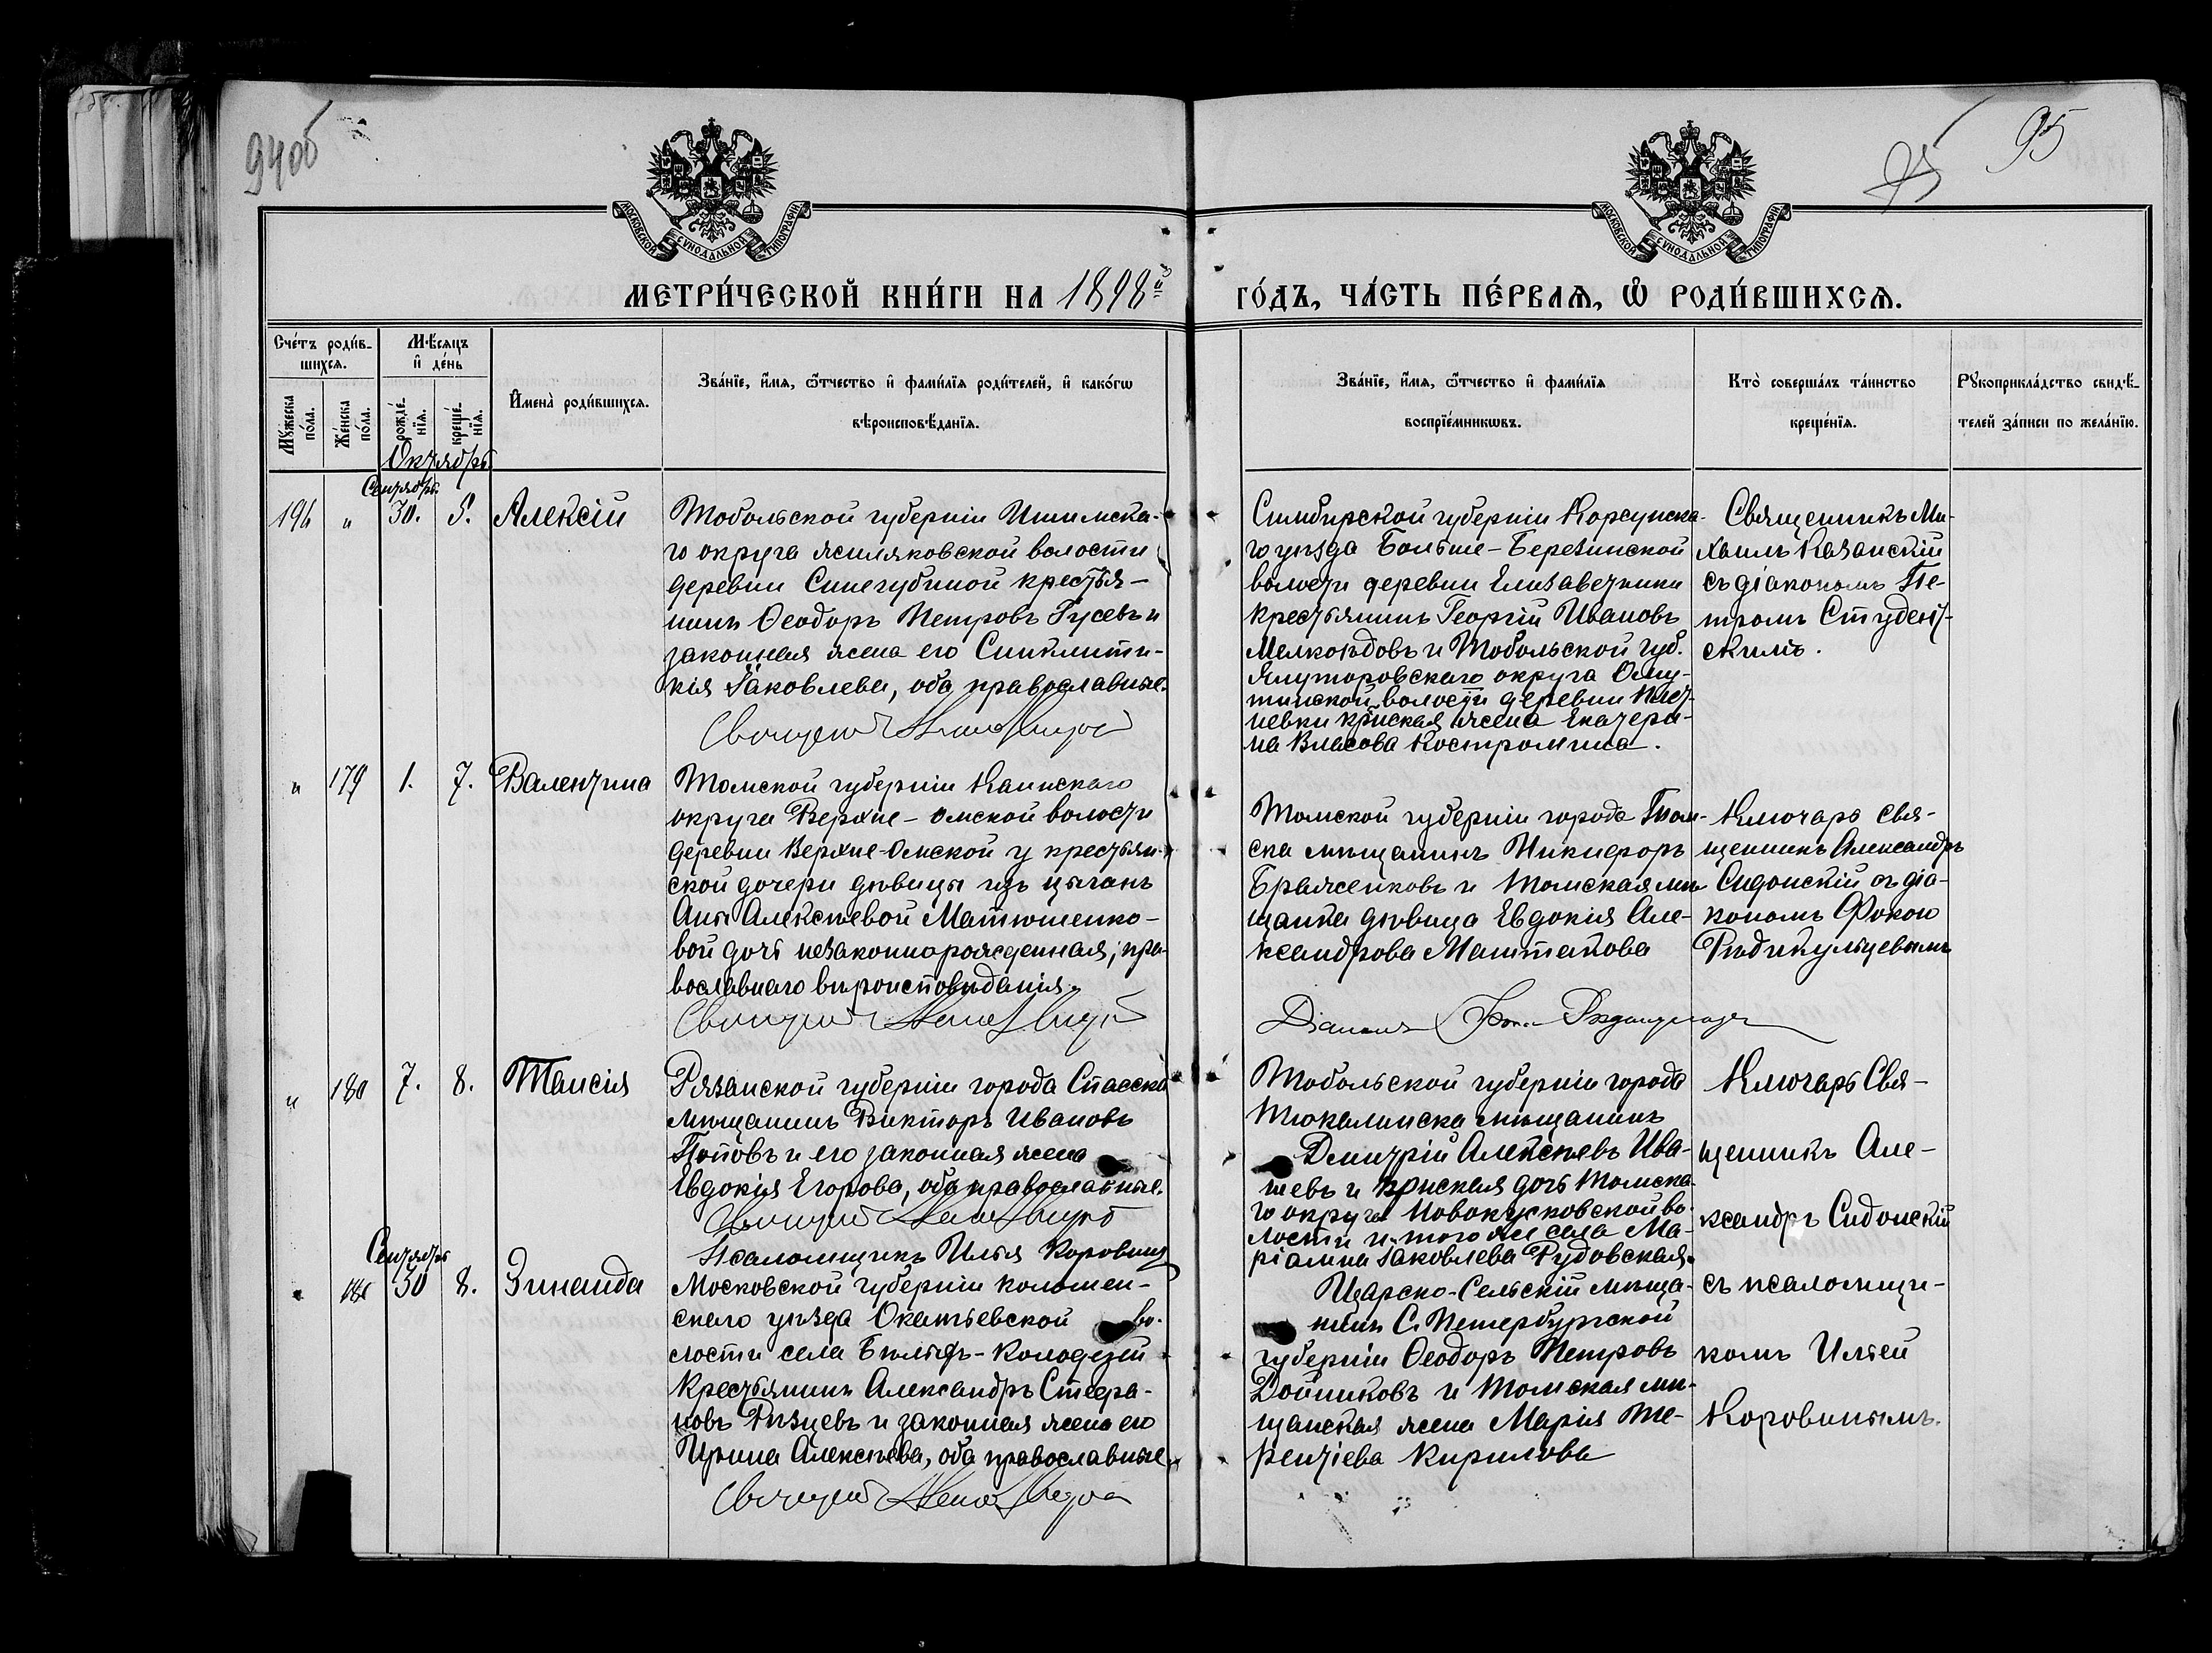 94об
95
95
МОСКОВСКОЙ СУНОДАЛЬНОЙ ТИПОГРАФІИ
МОСКОВСКОЙ СУНОДАЛЬНОЙ ТИПОГРАФІИ
МЕТРИ́ЧЕСКОЙ КНИ́ГИ НА 1898й
ГО́ДЪ, ЧА́СТЬ ПЕ́РВАѦ, Ѡ҆ РОДИ́ВШИХСѦ.
Сче́тъ роди́в-
шихсѧ.
Мꙋ́жеска по́ла.
Же́нска по́ла.
Мѣ́сѧцъ
и҆ де́нь
рожде́-нїѧ.
креще́-нїѧ.
И҆мена̀ роди́вшихсѧ.
Зва́нїе, и҆́мѧ, ѻ҆́тчество и҆ фами́лїѧ роди́телей, и҆ како́гѡ
вѣроисповѣ́данїѧ.
Зва́нїе, и҆́мѧ, ѻ҆́тчество и҆ фами́лїѧ
воспрїе́мникѡвъ.
Кто̀ соверша́лъ та́инство
креще́нїѧ.
Рꙋкоприкла́дство свидѣ́-
телей за́писи по жела́нїю.
Октябрь
Сентябрь
196 " 30. 5. Алексій
Тобольской губерніи Ишимска-
го округа
волости
деревни Синегубиной крестья-
нинъ Ѳеодоръ Петровъ Гусевъ и
законная жена его Синклити-
кія Іаковлева, оба православные.
Симбирской губерніи Корсунска-
го уѣзда Больше-Березинской
волости деревни Елизаветинки
крестьянинъ Георгій Ивановъ
и Тобольской губ.
Ялуторовскаго округа Ому-
тинской волости деревни
крнская жена Екатери-
на Власова Костромина.
Священникъ Ми-
хаилъ Казанскій
съ діакономъ Пе-
тромъ Студен-
скимъ.
" 179 1. 7. Валентина
Томской губерніи Каинскаго
округа Верхне-Омской волости
деревни Верхне-Омской у крестьян-
ской дочери дѣвицы изъ цыганъ
Анны Алексѣевой Матюшенко-
вой дочь незаконнорожденная; пра-
вославнаго вѣроисповѣданія.
Томской губерніи города Том-
ска мѣщанинъ Никифоръ
Браженковъ и Томская мѣ-
щанка дѣвица Евдокія Але-
ксандрова Маштакова
Ключарь Свя-
щенникъ Александръ
Сидонскій съ діа-
кономъ Фокою
Рѣдикульцевымъ
Діаконъ
" 180 7. 8. Таисія
Рязанской губерніи города Спасска
мѣщанинъ Викторъ Ивановъ
Поповъ и его законная жена
Евдокія Егорова, оба православные.
Псаломщикъ Илья Коровинъ
Тобольской губерніи города
Тюкалинска мѣщанинъ
Дмитрій Алексѣевъ Ива-
шевъ и крнская дочь Томска-
го округа Новокусковской во-
лости и того же села Ма-
ріамна Іаковлева Рудовская.
Ключарь Свя-
щенникъ Але-
ксандръ Сидонскій
съ псаломщи-
комъ Ильей
Коровинымъ.
Сентябрь
" 181 30 8. Зинаида
Московской губерніи Коломен-
скаго уѣзда Акатьевской во-
лости села Бѣлыхъ-Колодезей
крестьянинъ Александръ Стефа-
новъ Рязцевъ и законная жена его
Ирина Алексѣева, оба православные.
Царско-Сельскій мѣща-
нинъ С. Петербургской
губерніи Ѳеодоръ Петровъ
Дойниковъ и Томская мѣ-
щанская жена Марія Те-
рентіева Кирилова